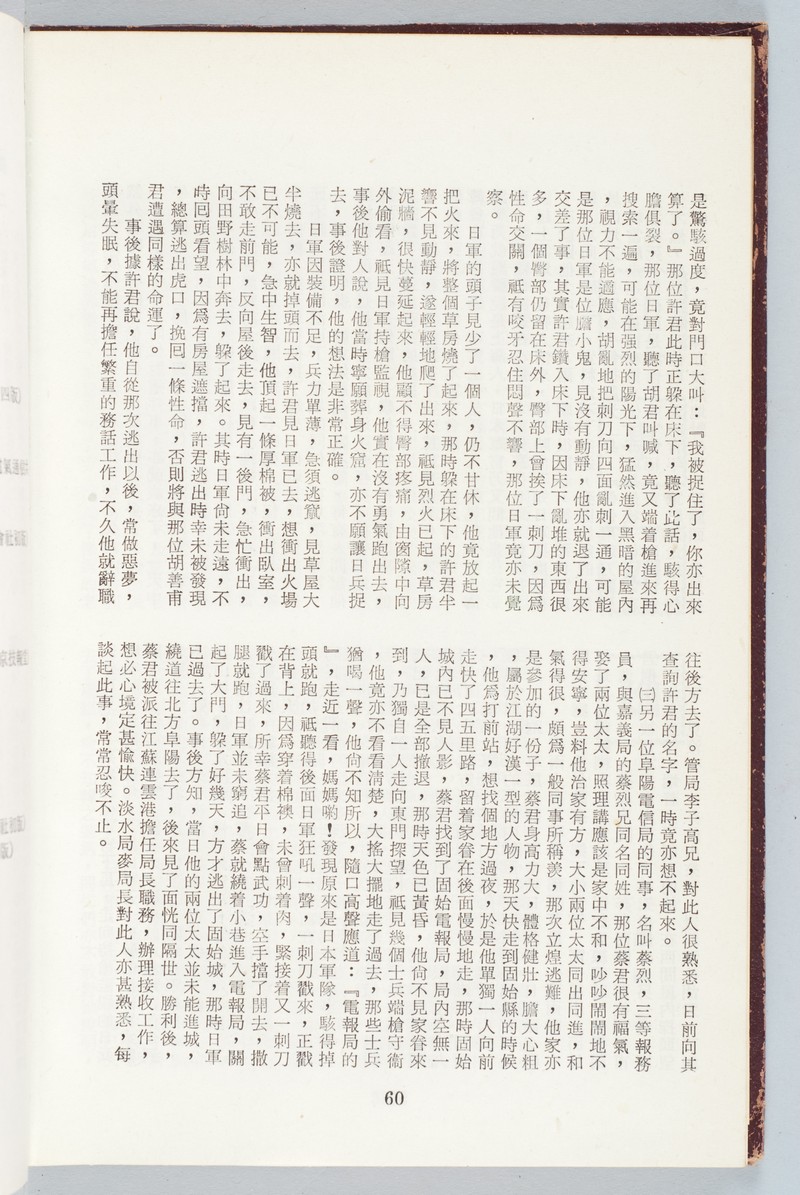 是驚駭過度，竟對門口大叫：『我被捉住了，你亦出來
算了。』那位許君此時正躲在床下，聽了此話，駭得心
膽俱裂，那位日軍，聽了胡君叫喊，竟又端着槍進來再
搜索一遍，可能在强烈的陽光下，猛然進入黑暗的屋內
，視力不能適應，胡亂地把刺刀向四面亂刺一通，可能
是那位日軍是位膽小鬼，見沒有動靜，他亦就退了出來
交差了事，其實許君鑽入床下時，因床下亂堆的東西很
多，一個臀部仍留在床外，臀部上曾挨了一刺刀，因爲
性命交關，祗有咬牙忍住悶聲不響，那位日軍竟亦未覺
察。
日軍的頭子見少了一個人，仍不甘休，他竟放起一
把火來，將整個草房燒了起來，那時躲在床下的許君半
響不見動靜，遂輕輕地爬了出來，祗見烈火已起，草房
泥牆，很快蔓延起來，他顧不得臀部疼痛，由窗隙中向
外偷看，祗見日軍持槍監視，他實在沒有勇氣跑出去，
事後他對人說，他當時寧願葬身火窟，亦不願讓日兵捉
去，事後證明，他的想法是非常正確。
日軍因裝備不足，兵力單薄，急須逃竄，見草屋大
半燒去，亦就掉頭而去，許君見日軍已去，想衝出火場
已不可能，急中生智，他頂起一條厚棉被，衝出臥室，
不敢走前門，反向屋後走去，見有一後門，急忙衝出，
向田野樹林中奔去，躲了起來。其時日軍尙未走遠，不
時回頭看望，因爲有房屋遮擋，許君逃出時幸未被發現
，總算逃出虎口，挽回一條性命，否則將與那位胡善甫
君遭遇同樣的命運了。
事後據許君說，他自從那次逃出以後，常做惡夢，
頭暈失眠，不能再擔任繁重的務話工作，不久他就辭職
往後方去了。管局李子高兄，對此人很熟悉，日前向其
查詢許君的名字，一時竟亦想不起來。
㈢另一位阜陽電信局的同事，名叫蔡烈，三等報務
員，與嘉義局的蔡烈兄同名同姓，那位蔡君很有福氣，
娶了兩位太太，照理講應該是家中不和，吵吵鬧鬧地不
得安寧，豈料他治家有方，大小兩位太太同出同進，和
氣得很，頗爲一般同事所稱羨，那次立煌逃難，他家亦
是參加的一份子，蔡君身高力大，體格健壯，膽大心粗
，屬於江湖好漢一型的人物，那天快走到固始縣的時候
，他爲打前站，想找個地方過夜，於是他單獨一人向前
走快了四五里路，留着家眷在後面慢慢地走，那時固始
城內已不見人影，蔡君找到了固始電報局，局內空無一
人，已是全部撤退，那時天色已黃昏，他尙不見家眷來
到，乃獨自一人走向東門探望，祗見幾個士兵端槍守衞
，他竟亦不看看清楚，大搖大擺地走了過去，那些士兵
猶喝一聲，他尙不知所以，隨口高聲應道：『電報局的
』，走近一看，媽媽喲！發現原來是日本軍隊，駭得掉
頭就跑，祗聽得後面日軍狂吼一聲，一刺刀戳來，正戳
在背上，因爲穿着棉襖，未曾刺着肉，緊接着又一刺刀
戳了過來，所幸蔡君平日會點武功，空手擋了開去，撒
腿就跑，日軍並未窮追，蔡就繞着小巷進入電報局，關
起了大門，躲了好幾天，方才逃出了固始城，那時日軍
已過去了。事後方知，當日他的兩位太太並未能進城，
繞道往北方阜陽去了，後來見了面恍同隔世。勝利後，
蔡君被派往江蘇連雲港擔任局長職務，辦理接收工作，
想必心境定甚愉快。淡水局麥局長對此人亦甚熟悉，每
談起此事，常常忍唆不止。
60